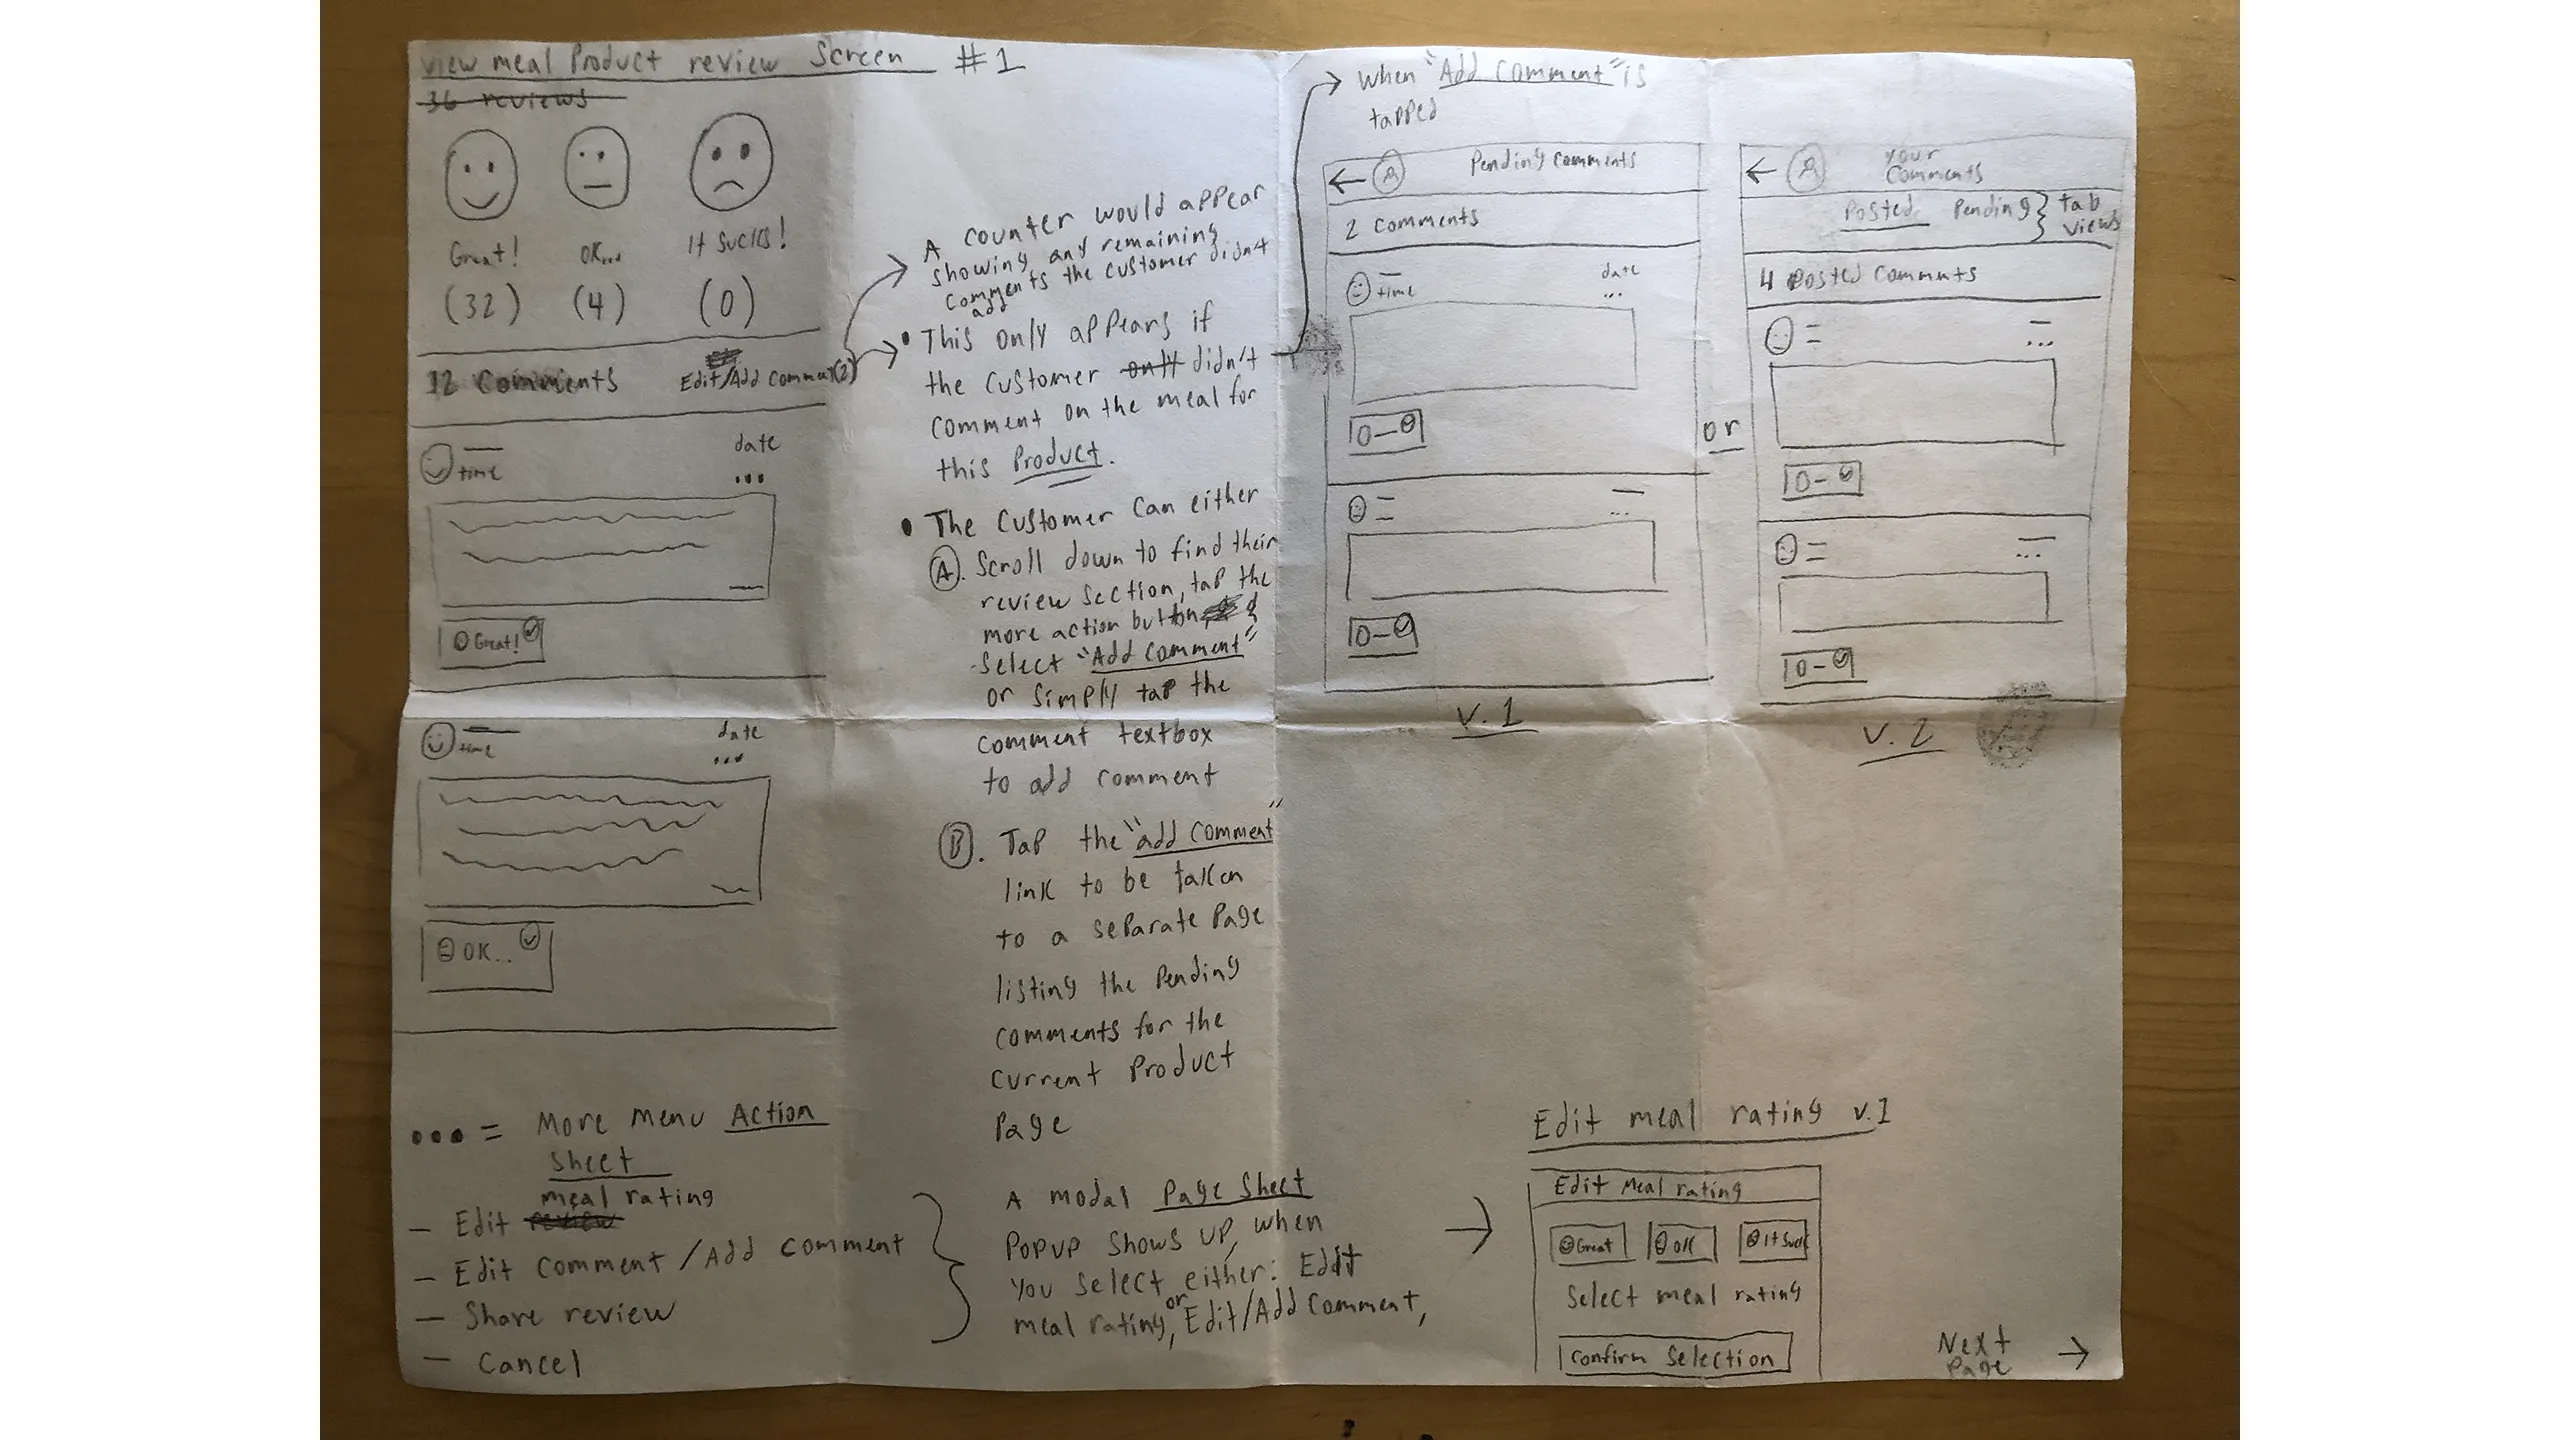 View meal Product review Screen #1
36 reviews
Great! OK... It sucks!
(32) (4) (0)
12 Comments Edit/Add Comment(2)
date
time
...
Great!
date
time
...
OK..
... = More Menu Action
Sheet
meal rating
- Edit review
- Edit Comment /Add Comment
- Share review
- Cancel
A counter would appear
showing any remaining
comments the customer didn't
add
• This only appears if
the customer only didn't
comment on the meal for
this Product.
• The Customer Can either
A. Scroll down to find their
review section, tap the
more action button, &
Select "Add Comment"
or Simply tap the
comment textbox
to add comment
B. Tap the "add Comment"
link to be taken
to a separate Page
listing the Pending
comments for the
Current Product
Page
A modal Page Sheet
Popup Shows up, when
You Select either: Edit
meal rating, or Edit/Add Comment,
When "Add Comment" is
tapped
Pending Comments
2 Comments
date
time
...
...
V. 1
or
Your
Comments
Posted Pending } tab
views
4 Posted Comments
...
...
V. 2
Edit meal rating v.1
Edit Meal rating
Great OK It Suck
Select meal rating
Confirm Selection
Next
Page